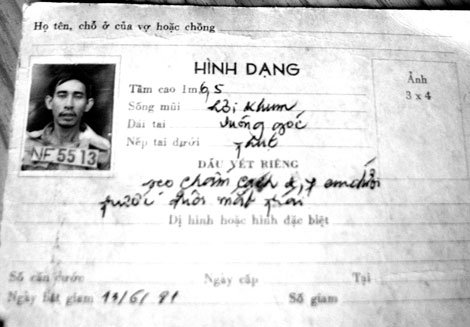 Họ tên, chỗ ở của vợ hoặc chồng
HÌNH DẠNG
Ảnh
3 x 4
Tầm cao 1m 65
Sống mũi Hơi Khum
Dái tai vuông góc
Nếp tai dưới
NF 5513
DẤU VẾT RIÊNG
sẹo chấm cách
dưới mắt
Dị hình hoặc hình đặc biệt
Số căn cước Ngày cấp Tại
Ngày bắt giam 13/6/81 Số giam